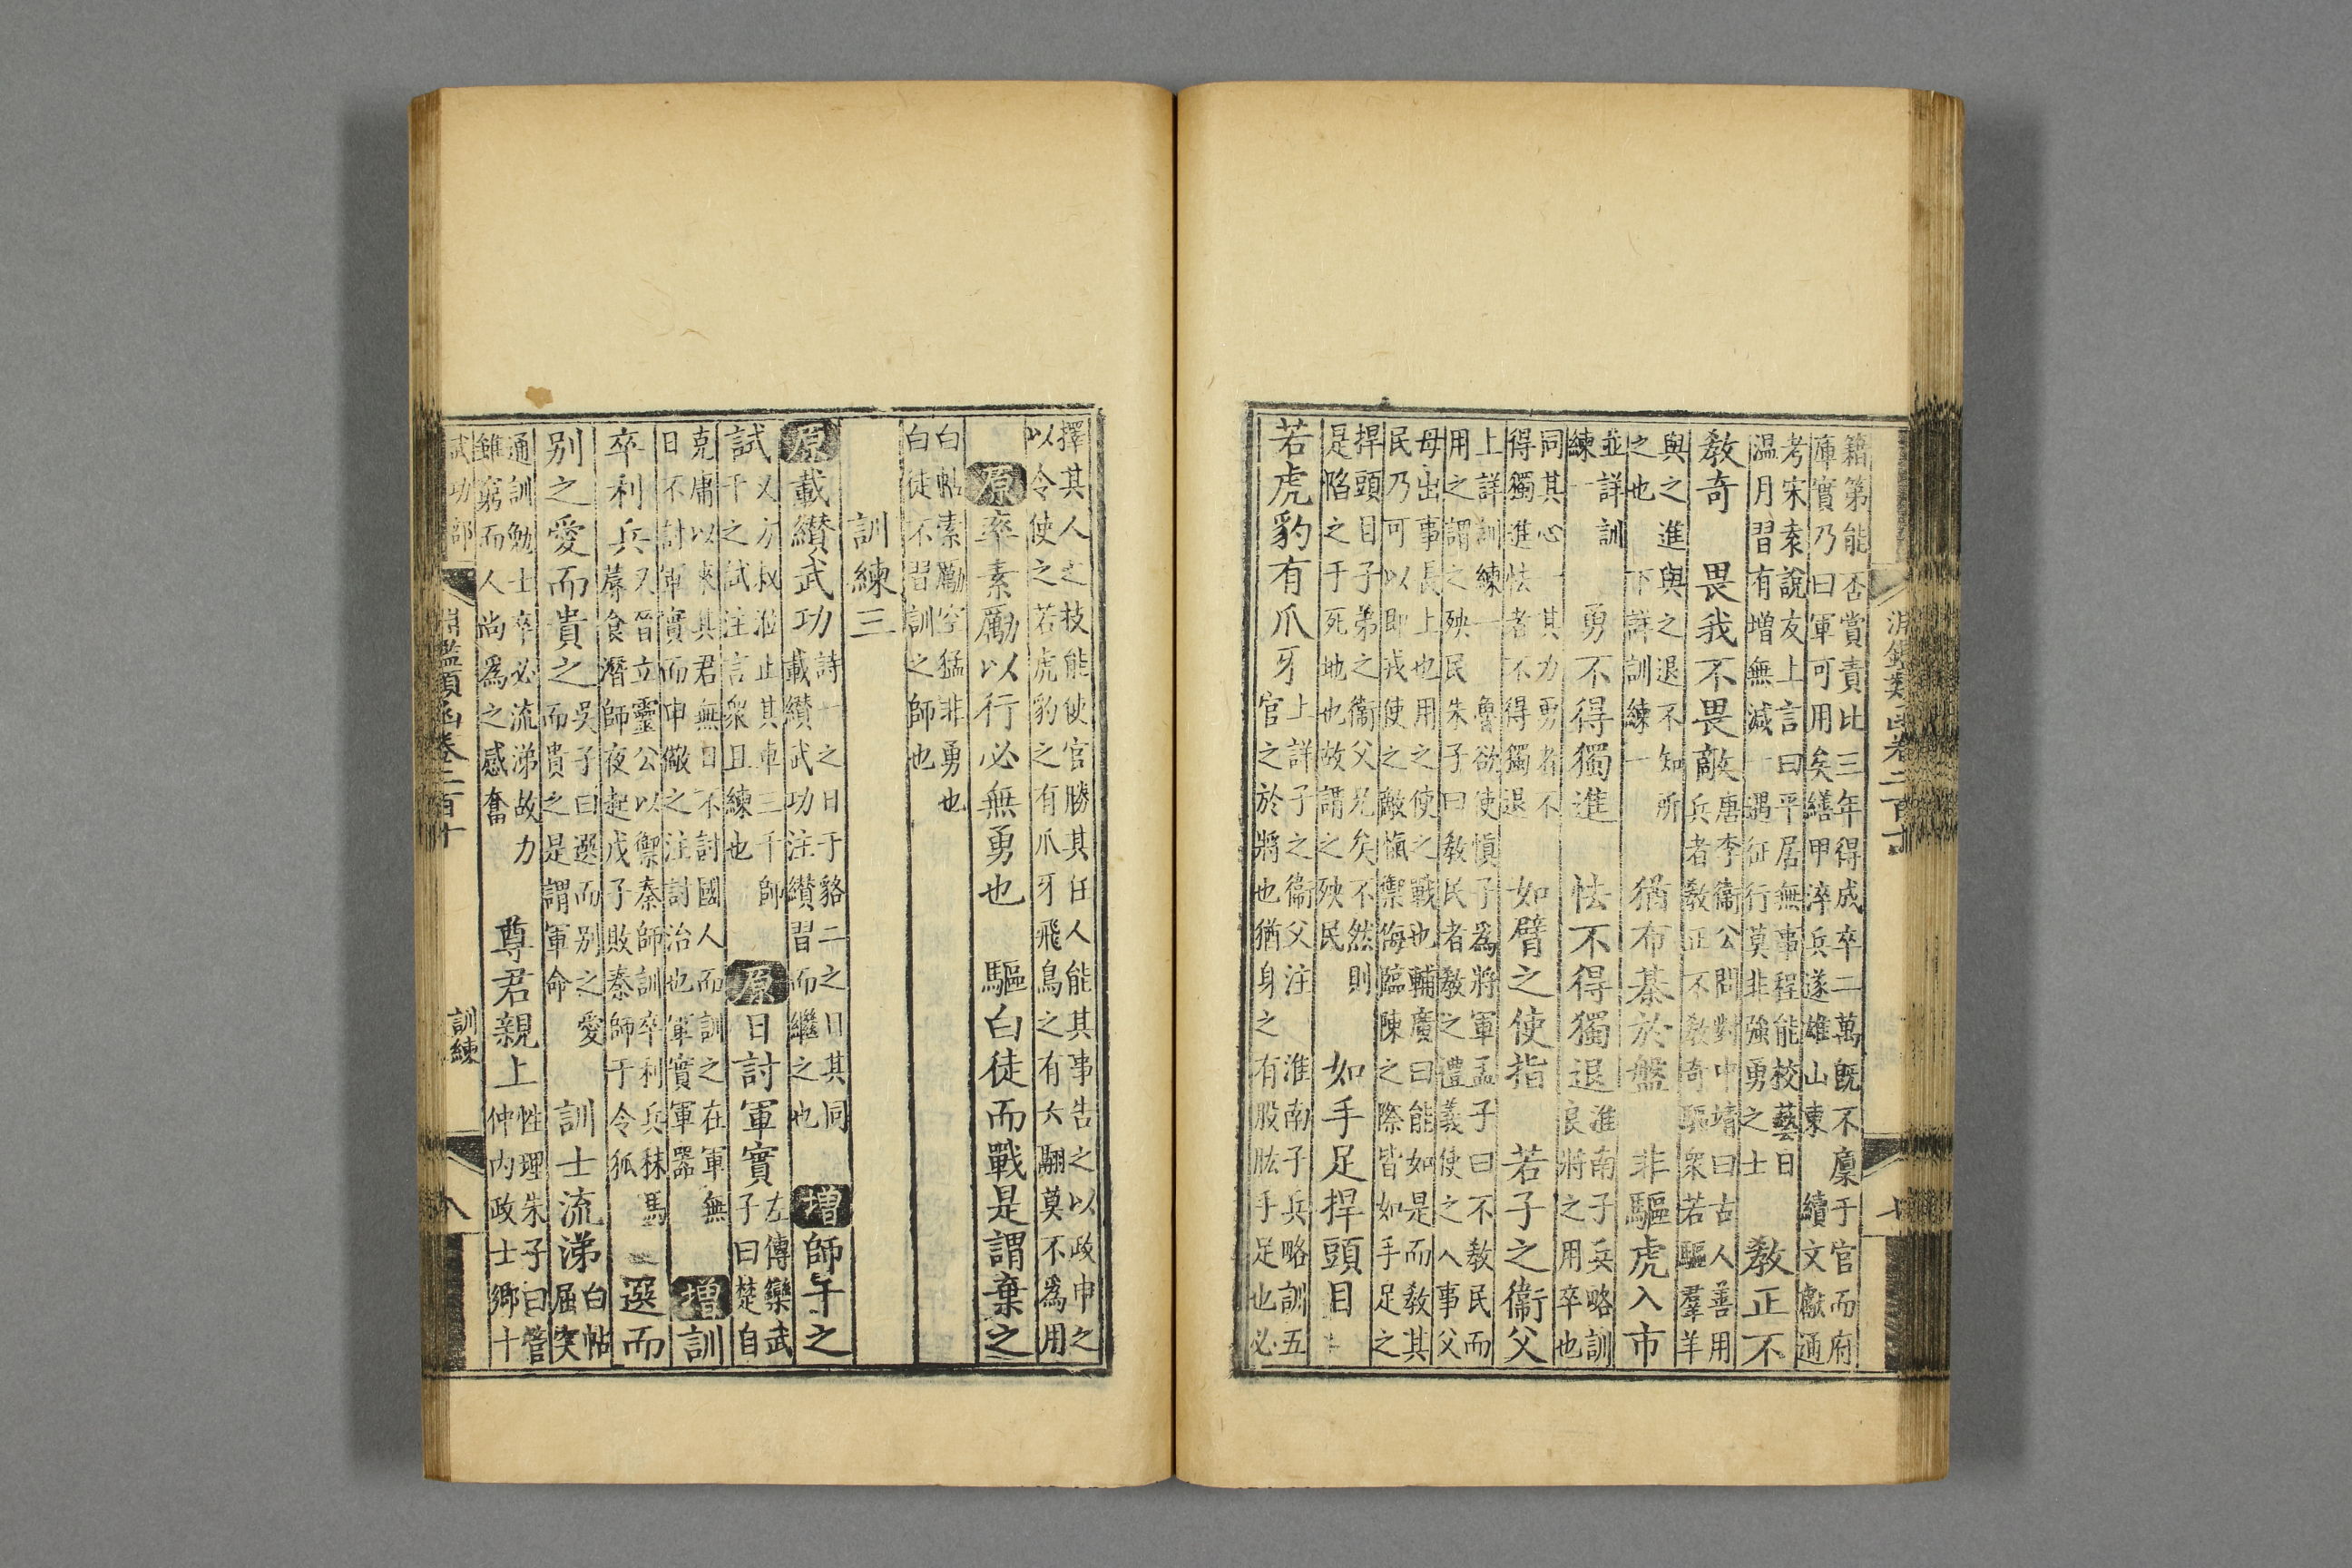 淵鑑類函卷二百十
七
籍第能否賞責比三年得成卒二萬既不廩于官而府
庫實乃曰軍可用矣繕甲淬兵遂雄山東 續文獻通
考宋袁說友上言曰平居無事程能校藝日
温月習有增無減一遇征行莫非強勇之士 教正不
教奇 畏我不畏敵 唐李衛公問對中靖曰古人善用
兵者教正不教奇驅衆若驅羣羊
與之進與之退不知所
之也 下詳訓練一 猶布棊於盤 非驅虎入市
並詳訓
練一 勇不得獨進 怯不得獨退 淮南子兵略訓
良將之用卒也
同其心一其力勇者不
得獨進怯者不得獨退 如臂之使指 若子之衞父
上詳訓練一 魯欲使愼子爲將軍孟子曰不教民而
用之謂之殃民朱子曰教民者教之禮義使之入事父
母出事長上也用之使之戰也輔廣曰能如是而教其
民乃可以即戎使之敵愾禦侮臨陳之際皆如手足之
捍頭目子弟之衞父兄矣不然則
是陷之于死地也故謂之殃民 如手足捍頭目
若虎豹有爪牙 上詳子之衞父注 淮南子兵略訓五
官之於將也猶身之有股肱手足也必
擇其人之技能使官勝其任人能其事告之以政申之
以令使之若虎豹之有爪牙飛鳥之有六翮莫不爲用
原率素厲以行必無勇也 驅白徒而戰是謂棄之
白帖素勵空猛非勇也
白徒不習訓之師也
訓練三
原載纘武功 詩一之日于貉二之日其同
載纘武功注纘習而繼之也 增師干之
試 又方叔涖止其車三千師
干之試注言衆且練也 原日討軍實 左傳欒武
子曰楚自
克庸以來其君無日不討國人而訓之在軍無
日不討軍實而申儆之注討治也軍實軍器 增訓
卒利兵 又晉立靈公以禦秦師訓卒利兵秣馬
蓐食潛師夜起戊子敗秦師于令狐 選而
别之愛而貴之 吳子曰選而别之愛
而貴之是謂軍命 訓士流涕 白帖
屈突
通訓勉士卒必流涕故力
雖窮而人尚爲之感奮 尊君親上 性理朱子曰管
仲内政士鄉十
武功部
淵鑑類函卷二百十
訓練
八